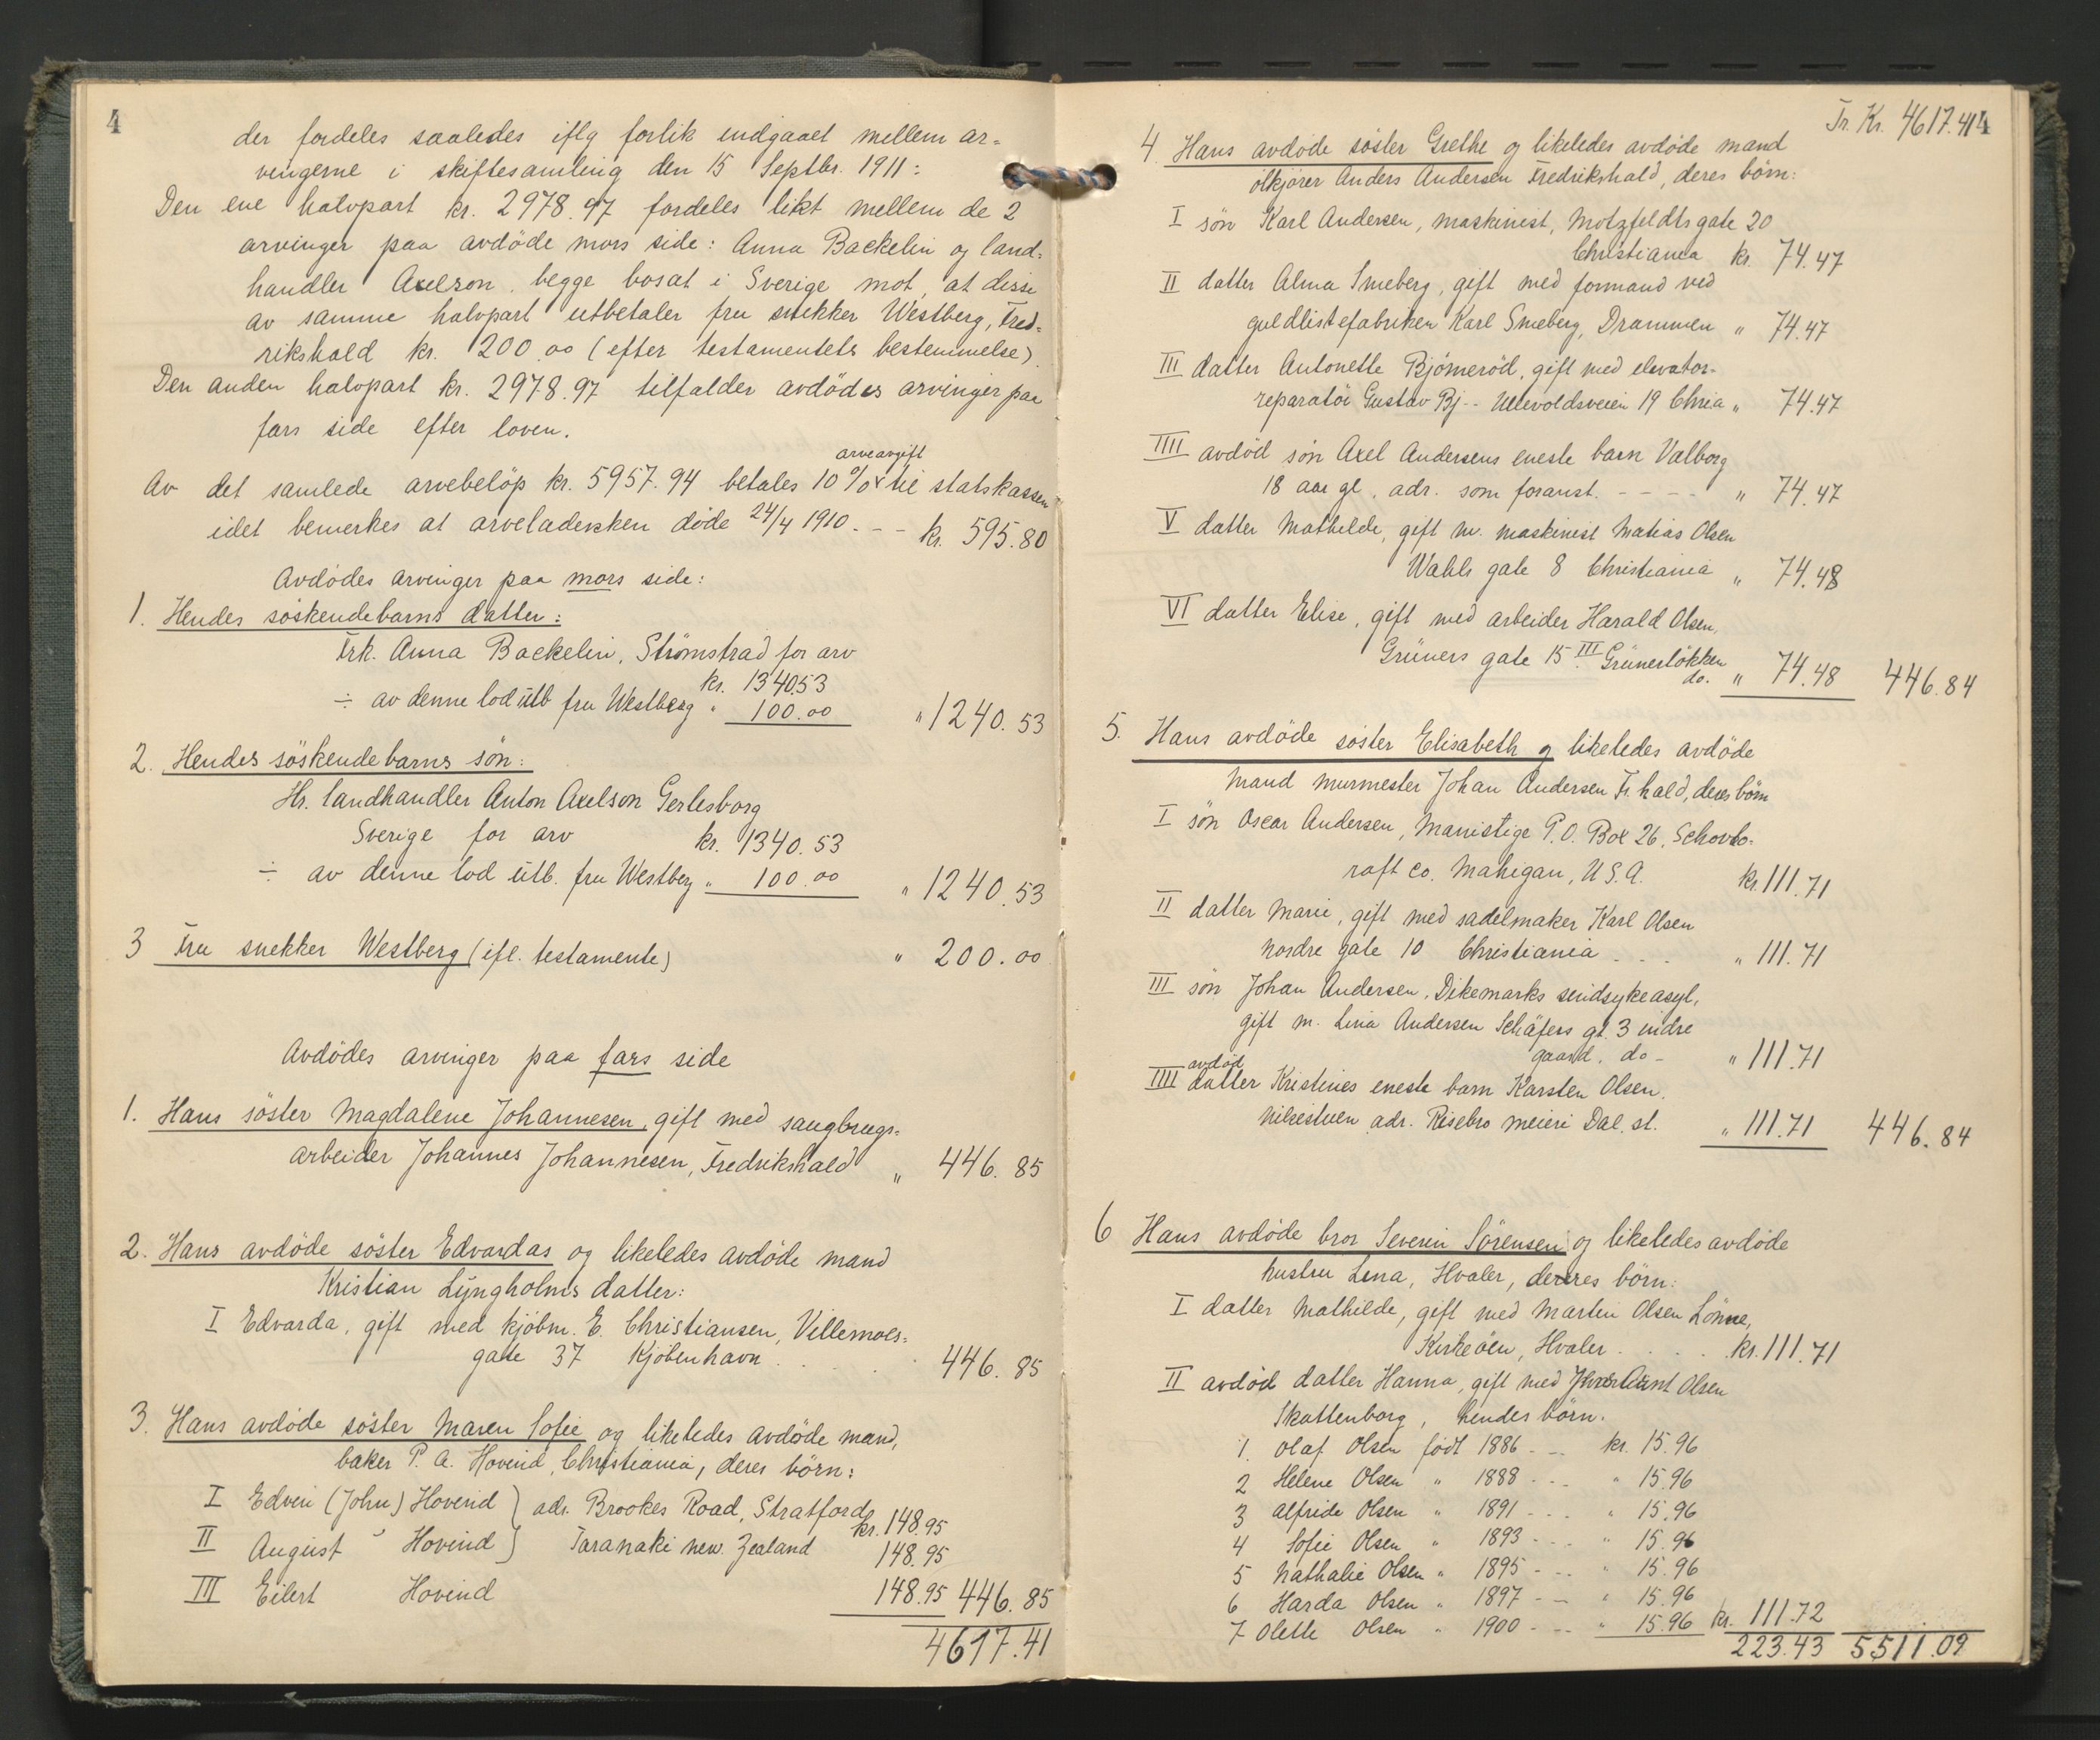 4
der fordeles saaledes iflg forlik indgaaet mellem ar-
vingerne i skiftesamling den 15 Septbr. 1911:
Den ene halvpart kr. 2978.97 fordeles likt mellem de 2
arvinger paa avdöde mors side: Anna Backelin og land-
handler Axelson, begge bosat i Sverige mot, at disse
av samme halvpart utbetaler fru snekker Westberg, Fred-
rikshald kr. 200.00 (efter testamentets bestemmelse)
Den anden halvpart kr. 2978.97 tilfalder avdödes arvinger paa
fars side efter loven.
arveavgift
Av det samlede arvebelöp kr. 5957.94 betales 10% x til statskassen
idet bemerkes at arveladersken döde 24/4 1910. - - kr. 595.80
Avdödes arvinger paa mors side:
1. Hendes söskendebarns datter:
Frk. Anna Backelin, Strömstad for arv
kr. 1340.53
÷ av denne lod utb fru Westberg " 100.00 " 1240.53
2. Hendes söskendebarns sön:
Hr. landhandler Anton Axelson Gerlesborg
Sverige for arv kr. 1340.53
÷ av denne lod utb. fru Westberg " 100.00 " 1240.53
3 Fru snekker Westberg (ifl. testamente) " 200.00
Avdödes arvinger paa fars side
1. Hans söster Magdalene Johannesen, gift med saugbrugs-
arbeider Johannes Johannesen, Fredrikshald " 446.85
2. Hans avdöde söster Edvardas og likeledes avdöde mand
Kristian Lyngholms datter:
I Edvarda, gift med kjöbm. E. Christiansen, Villemoes-
gate 37 Kjöbenhavn . . . . 446.85
3. Hans avdöde söster Maren Sofie og likeledes avdöde mand,
baker P. A. Hovind, Christiania, deres börn:
I Edvin (John) Hovind } adr. Brookes Road, Stratford kr. 148.95
II August Hovind } Taranaki new. Zealand 148.95
III Eilert Hovind 148.95 446.85
4617.41
Tr. Kr. 4617.41
4
4. Hans avdöde söster Grethe og likeledes avdöde mand
ölkjörer Anders Andersen Fredrikshald, deres börn:
I sön Karl Andersen, maskinist, Motzfeldts gate 20
Christiania kr. 74.47
II datter Alma Smeberg, gift med formand ved
guldlistefabriken Karl Smeberg, Drammen " 74.47
III datter Antonette Björneröd, gift med elevator-
reparatör Gustav Bj-- Ullevoldsveien 19 Chria " 74.47
IIII avdöd sön Axel Andersens eneste barn Valborg
18 aar gl. adr. som foranst. - - - - " 74.47
V datter Mathilde, gift m. maskinist Matias Olsen
Wahls gate 8 Christiania " 74.48
VI datter Elise, gift med arbeider Harald Olsen,
Grüners gate 15 III Grünerlökken
do. " 74.48 446.84
5. Hans avdöde söster Elisabeth og likeledes avdöde
mand murmester Johan Andersen Fr.hald, deres börn
I sön Oscar Andersen, Manistige P.O. Box 26, Schovlo-
raft co. Mahigan, U.S.A. kr. 111.71
II datter Marie, gift med sadelmaker Karl Olsen
nordre gate 10 Christiania . . . " 111.71
III sön Johan Andersen, Dikemarks sindsykeasyl,
gift m. Lina Andersen Schäfers gt. 3 indre
gaard. do - " 111.71
avdöd
IIII datter Kristines eneste barn Karsten Olsen,
Nilsestuen adr. Risebro meieri Dal st. " 111.71 446.84
6 Hans avdöde bror Severin Sörensen og likeledes avdöde
hustru Lena, Hvaler, deres börn:
I datter Mathilde, gift med Martin Olsen Lönne,
Kirkeöen, Hvaler . . . . kr. 111.71
II avdöd datter Hanna, gift med Olsen
Skattenborg, hendes börn.
1. Olaf Olsen födt 1886 - - kr. 15.96
2 Helene Olsen " 1888 - - - " 15.96
3 Alfride Olsen " 1891 - - - " 15.96
4 Sofie Olsen " 1893 - - - " 15.96
5 Nathalie Olsen " 1895 - - - " 15.96
6 Harda Olsen " 1897 - - " 15.96
7 Olette Olsen " 1900 - - - " 15.96 kr. 111.72
223.43 5511.09